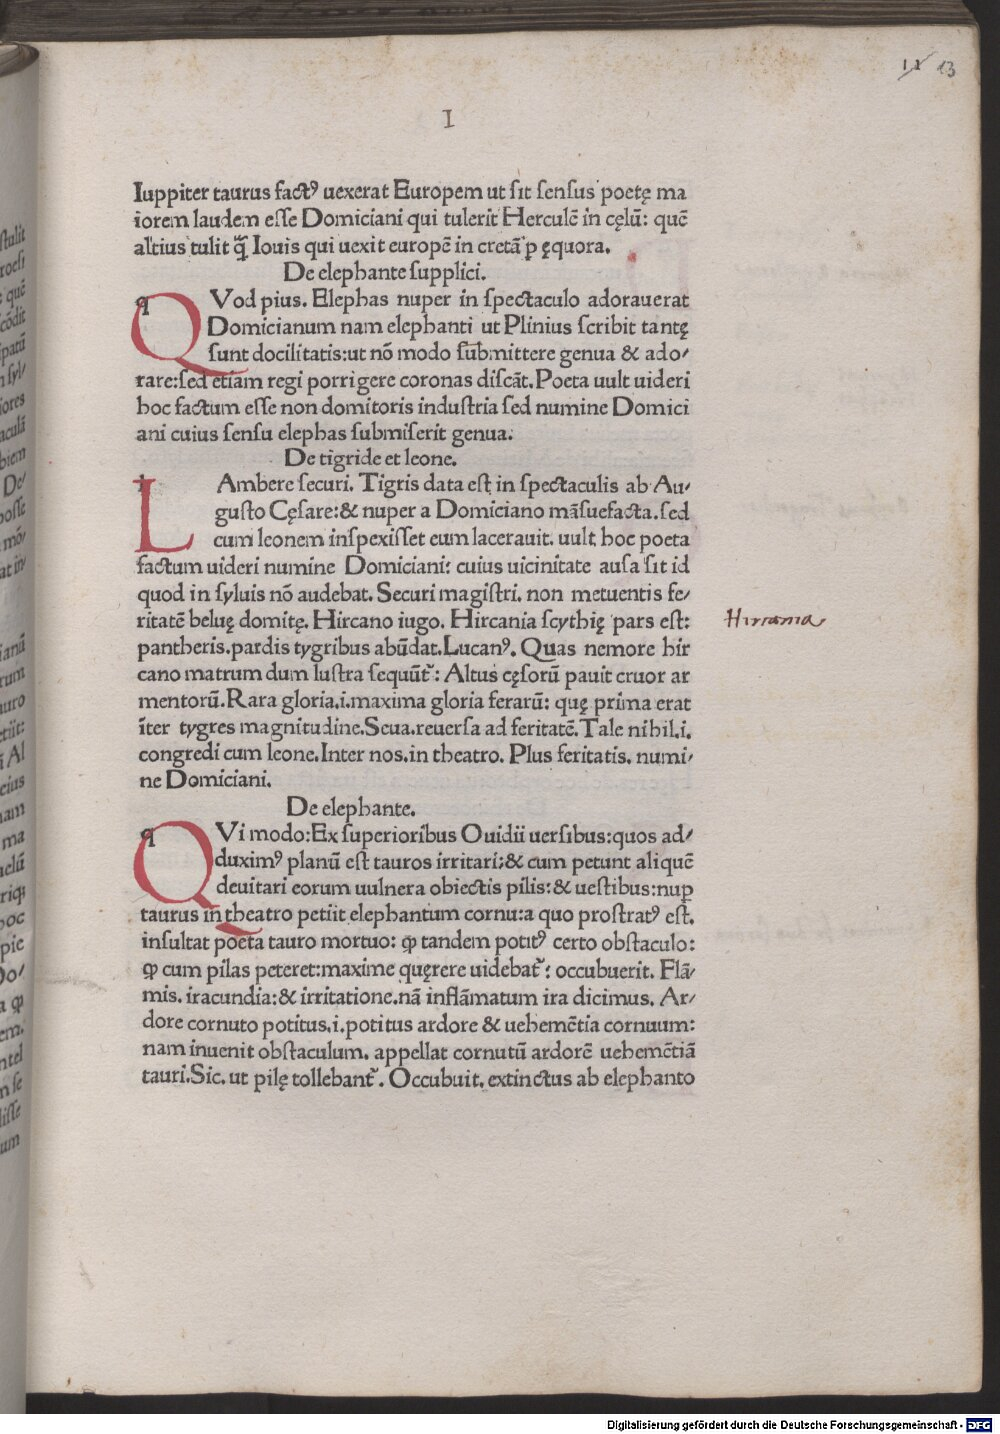 11 13
I
Iuppiter taurus factꝰ uexerat Europem ut sit sensus poetę ma
iorem laudem esse Domiciani qui tulerit Herculē in cęlū: quē
altius tulit q̄ Iouis qui uexit europē in cretā ꝑ ęquora.
De elephante supplici.
q QVod pius. Elephas nuper in spectaculo adorauerat
Domicianum nam elephanti ut Plinius scribit tantę
sunt docilitatis:ut nō modo submittere genua & ado-
rare:sed etiam regi porrigere coronas discāt. Poeta uult uideri
hoc factum esse non domitoris industria sed numine Domici
ani cuius sensu elephas submiserit genua.
De tigride et leone.
LAmbere securi. Tigris data est in spectaculis ab Au-
gusto Cęsare:& nuper a Domiciano māsuefacta.sed
cum leonem inspexisset eum lacerauit. uult hoc poeta
factum uideri numine Domiciani: cuius uicinitate ausa sit id
quod in syluis nō audebat. Securi magistri. non metuentis fe-
ritatē beluę domitę. Hircano iugo. Hircania scythię pars est:
pantheris.pardis tygribus abūdat.Lucanꝰ. Quas nemore hir
cano matrum dum lustra sequūt᷑: Altus cęsorū pauit cruor ar
mentorū.Rara gloria.i.maxima gloria ferarū: quę prima erat
īter tygres magnitudine.Seua.reuersa ad feritatē.Tale nihil.i.
congredi cum leone.Inter nos.in theatro. Plus feritatis. numi-
ne Domiciani.
De elephante.
q QVi modo:Ex superioribus Ouidii uersibus:quos ad-
duximꝰ planū est tauros irritari:& cum petunt aliquē
deuitari eorum uulnera obiectis pilis:& uestibus:nuꝑ
taurus in theatro petiit elephantum cornu:a quo prostratꝰ est.
insultat poeta tauro mortuo: ꝙ tandem potitꝰ certo obstaculo:
ꝙ cum pilas peteret:maxime quęrere uidebat᷑: occubuerit. Flā-
mis. iracundia:& irritatione.nā inflāmatum ira dicimus. Ar-
dore cornuto potitus.i.potitus ardore & uehemētia cornuum:
nam inuenit obstaculum. appellat cornutū ardorē uehemētiā
tauri.Sic. ut pilę tollebant᷑. Occubuit. extinctus ab elephanto
Hircania
Digitalisierung gefördert durch die Deutsche Forschungsgemeinschaft - DFG